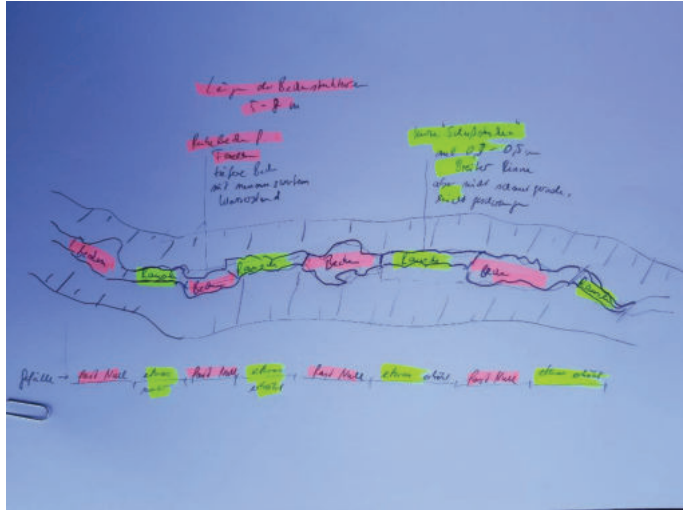 Längen der Beckenstrukturen
5-8 m
Becken
tiefere
mit
Wasserstand
kurze "Schußstrecken"
mit 0,3 - 0,5 m
Breiter Rinne
aber nicht schnurgerade,
leicht geschwungen
Becken
Rausche
Becken
Rausche
Becken
Rausche
Becken
Rausche
Gefälle → fast Null
etwas
fast Null
etwas
erhöht
fast Null
etwas erhöht
fast Null
etwas erhöht